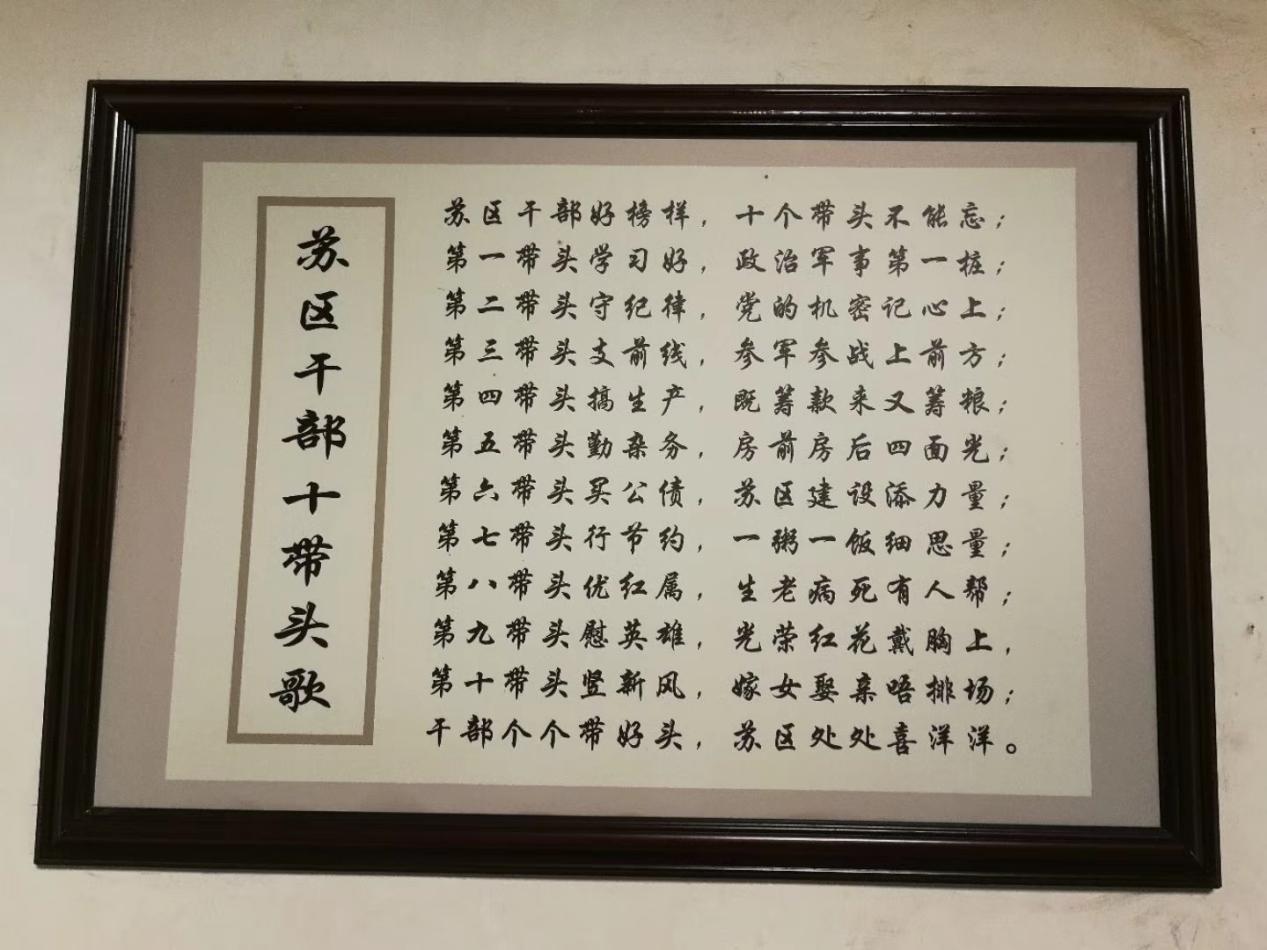 苏区干部十带头歌
苏区干部好榜样，十个带头不能忘；
第一带头学习好，政治军事第一桩；
第二带头守纪律，党的机密记心上；
第三带头支前线，参军参战上前方；
第四带头搞生产，既筹款来又筹粮；
第五带头勤杂务，房前房后四面光；
第六带头买公债，苏区建设添力量；
第七带头行节约，一粥一饭细思量；
第八带头优红属，生老病死有人帮；
第九带头慰英雄，光荣红花戴胸上，
第十带头竖新风，嫁女娶亲唔排场；
干部个个带好头，苏区处处喜洋洋。